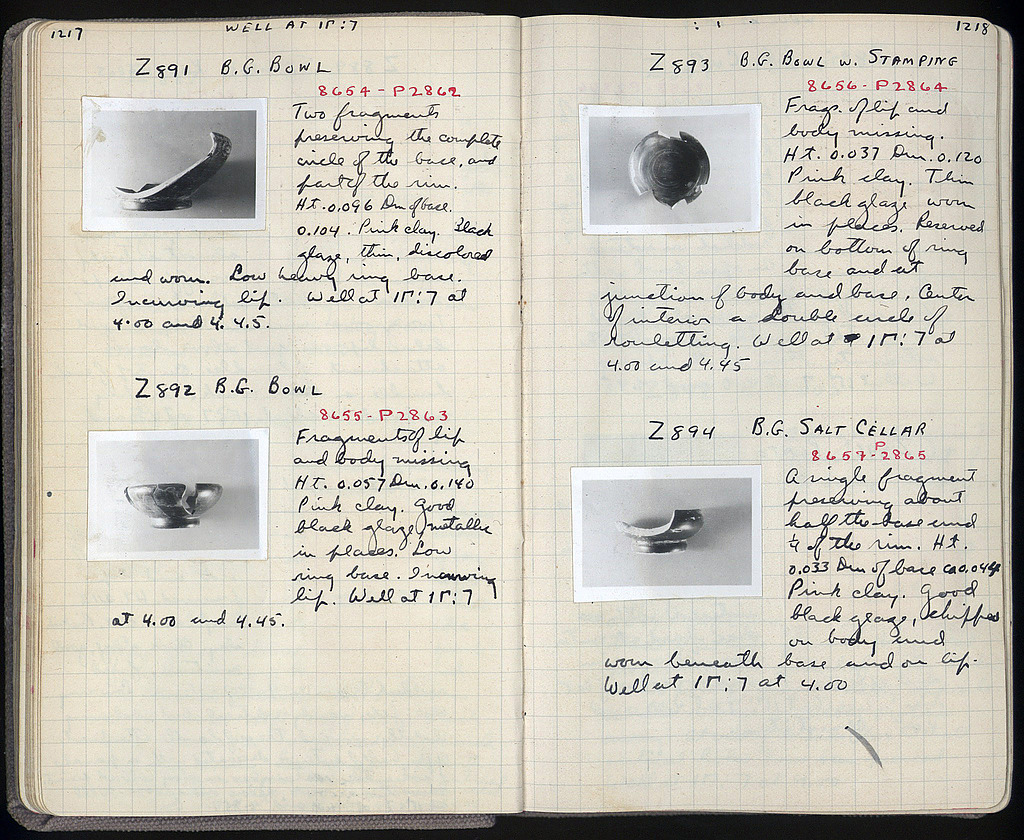 1217
WELL AT 1Γ:7
Z891 B.G. BOWL
8654 - P2862
Two fragments
preserving the complete
circle of the base, and
part of the rim.
Ht. 0.096 Dm of base.
0.104. Pink clay. Black
glaze, thin, discolored
and worn. Low heavy ring base.
Incurving lip. Well at 1Γ:7 at
4.00 and 4.45.
Z892 B.G. BOWL
8655 - P2863
Fragments of lip
and body missing
Ht. 0.057 Dm. 0.140
Pink clay. Good
black glaze, metallic
in places. Low
ring base. Incurving
lip. Well at 1Γ:7
at 4.00 and 4.45.
1218
Z893 B.G. BOWL W. STAMPING
8656 - P2864
Frags. of lip and
body missing.
Ht. 0.037 Dm. 0.120
Pink clay. Thin
black glaze worn
in places. Reserved
on bottom of ring
base and at
junction of body and base. Center
of interior a double circle of
rouletting. Well at 1Γ:7 at
4.00 and 4.45
Z894 B.G. SALT CELLAR
8657 - P2865
A single fragment
preserving about
half the base and
¼ of the rim. Ht.
0.033 Dm of base ca 0.044
Pink clay. Good
black glaze, chipped
on body and
worn beneath base and on lip.
Well at 1Γ:7 at 4.00